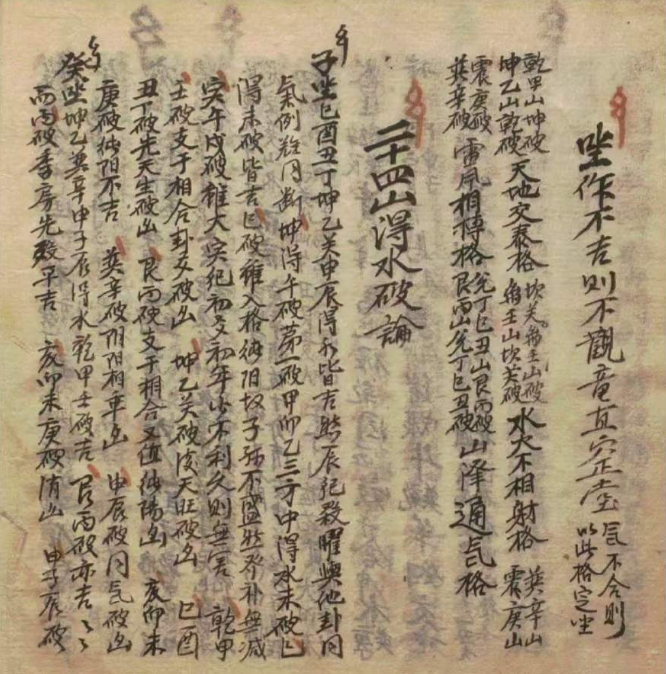 坐作不吉則不觀竜直定虛 氣不合則以此格定坐
乾甲山坤破坤乙山乾破 天地交泰格 坎癸 山破 山坎癸破 水火不相射格 巽辛山震庚山
震庚破巽辛破 雷風相搏格 兌丁巳丑山艮丙破艮丙山兌丁巳丑破 山澤通氣格
二十四山得水破論
子坐巳酉丑丁坤乙癸申辰得水皆吉然辰犯殺曜與他卦同
氣例難同斷坤得午破第一破甲卯乙三方中得水未破巳
得未破皆吉巳破雖入格純陽故子孫不盛然 補無減
寅午戌破雖大 犯初爻初年少不利久則無害 乾甲
壬破支干相合卦爻破凶 坤乙癸破後天旺破凶 巳酉
丑丁破先天生破凶 艮丙破支干相合又值純陽凶 亥卯未
庚破純陽不吉 巽辛破陰陽相乖凶 申辰破同氣破凶
癸坐坤乙巽辛申子辰得水乾甲壬破吉 艮丙破亦吉
而丙破季房先 早吉 亥卯未庚破 凶 申子辰破